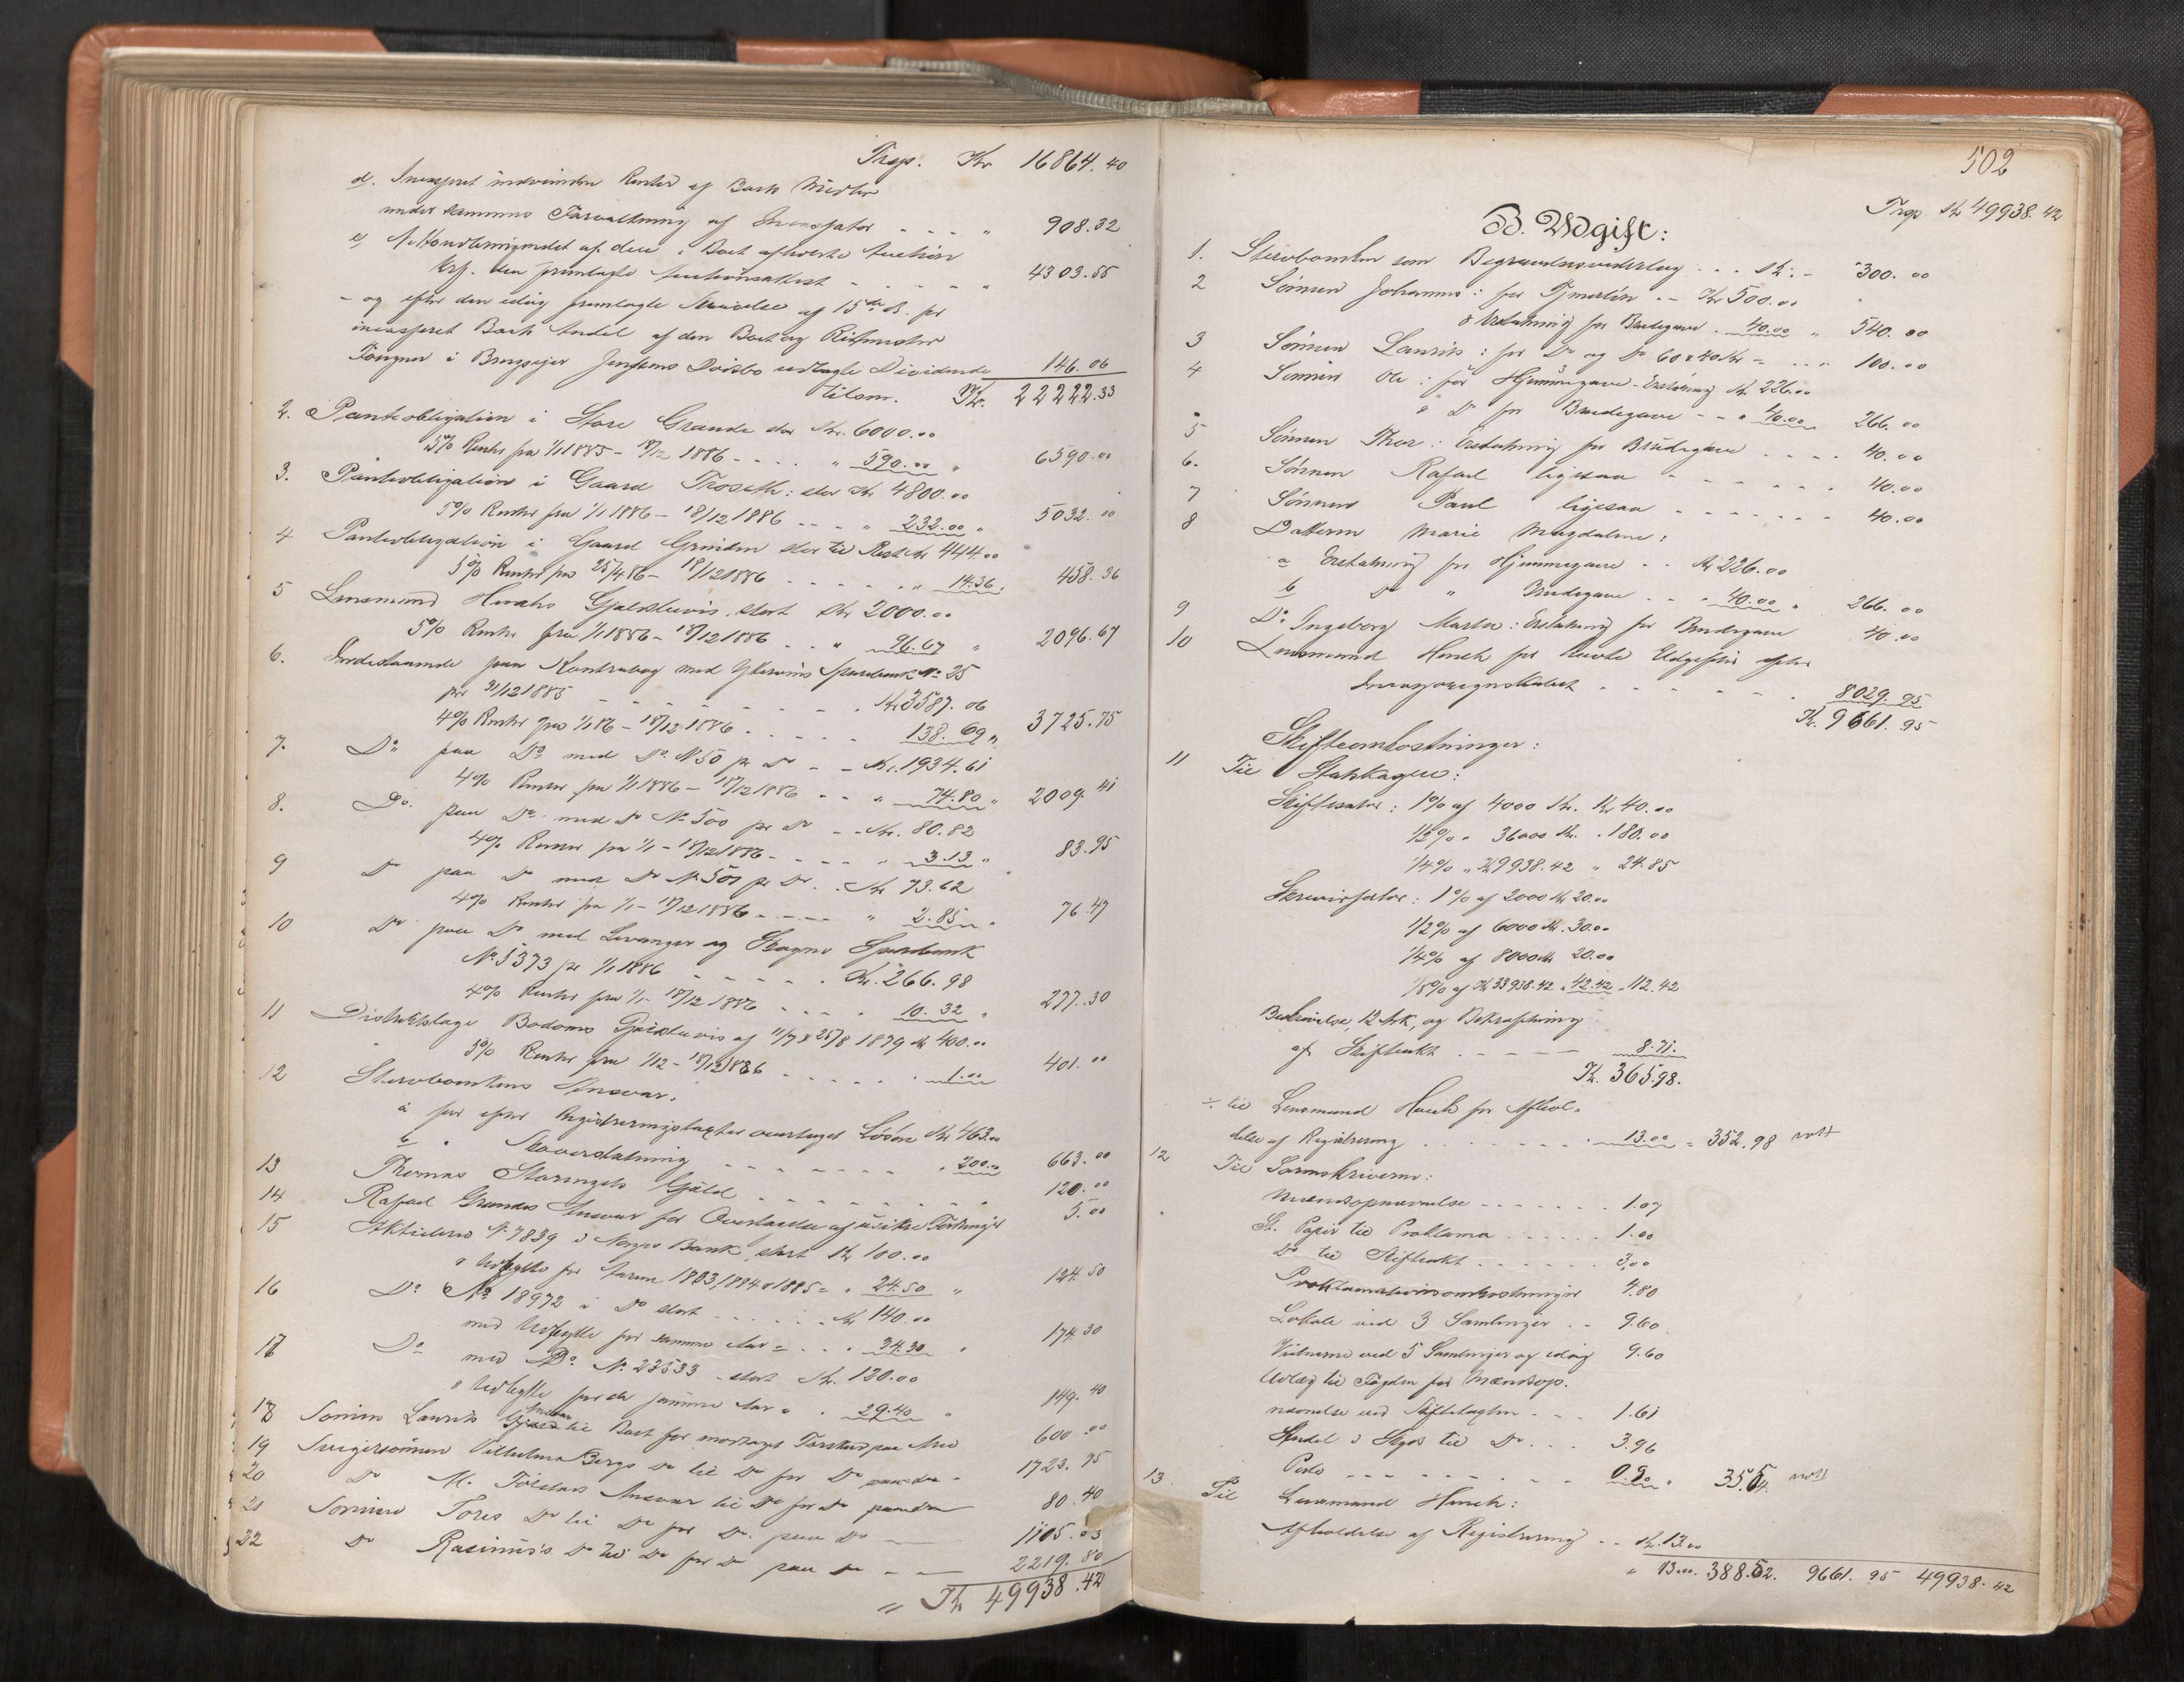 Trsp. Kr 16864.40
d. Incasseret indvundne Renter af Boets Midler
under sammes Forvaltning af Incassator - - - " 908.32
e, Nettoudbringendet af den i Boet afholdte Auktion
krf. den fremlagte Auktionsattest - - - - " 4303.55
- og efter den idag fremlagte Skrivelse af 15de ds. for
incasseret Boets Andel af den Boet og Ritmester
i Brugseier Jenssens Dødsbo udlagte Dividende 146.06
tilsm. Kr. 22222.33
2. Panteobligation i Store Grande stor Kr. 6000.00
5% Renter fra 1/1 1885 - 18/12 1886 - - - - " 590.00 " 6590.00
3. Panteobligation i Gaard Troseth: stor Kr 4800.00
5% Renter fra 1/1 1886 - 18/12 1886 - - - " 232.00 " 5032.00
4 Panteobligation i Gaard Grinden stor til Rest Kr 444.00
5% Renter fra 25/4 86 - 18/12 1886 - - - - " 14.36. 458.36
5 Lensmand Hucks Gjeldsbevis, stort Kr 2000.00
5% Renter fra 1/1 1886 - 18/12 1886 - - " 96.67 " 2096.67
6. Indestaaende paa Kontrabog med Ytterøens Sparebank No 25
pr 31/12 1885 - - - - - - Kr 3587.06
4% Renter fra 1/1 86 - 18/12 1886 - - - - 138.69 " 3725.75
7. Do paa Do med Do N 50 pr Do - - Kr. 1934.61
4% Renter fra 1/1 1886 - 18/12 1886 - - " 74.80 " 2009.41
8. Do. paa Do med Do No 500 pr Do - - Kr. 80.82
4% Renter fra 1/1 - 18/12 1886 - - - - " 3.13 " 83.95
9 Do paa Do med Do No 501 pr Do. . Kr 73.62
4% Renter fra 1/1 - 18/12 1886 - - - - " 2.85 " 76.47
10 Do paa Do med Levanger og Skogns Sparebank
No 5373 pr 1/1 1886 - - - - - Kr. 266.98
4% Renter fra 1/1 - 18/12 1886 - - - - 10.32 " 277.30
11 Distriktslæge Bodoms Gjeldsbevis af 11/7 & 25/8 1879 Kr 400.00
5% Renter fra 1/12 - 18/12 1886 - - - - - 1.00 401.00
12 Stervboenkens Ansvar.
a for efter Registreringstaxten overtaget Løsøre Kr 463.00
b " Skoverstatning - - - - - - - " 200.00 663.00
13 Thomas Staringets Gjæld - - - - - - - 120.00
14 Rafael Grandes Ansvar for Overtagelse af usikre Fordringer 5.00
15 Aktiebrev No 7839 i Norges Bank, stort Kr 100.00
& Udbytte for Aarene 1883, 1884 & 1885 = " 24.50 " 124.50
16 Do No 18972 i Do stort - - - - - Kr 140.00
med Udbytte for samme Aar = - - " 34.30 " 174.30
17 Do med Do No 23533 - stort Kr. 120.00
& Udbytte for de samme Aar = " 29.40 " 149.40
18 Sønnen Laurits Ansvar til Boet for modtaget Forskud paa Arv 600.00
19 Svigersønnen Vilhelm Bergs Do til Do for Do paa do - 1723.75
20 Do M. Tolstads Ansvar til Do for Do paa do 80.40
21 Sønnen Tores Do til Do for Do. paa Do 1105.03
22 Do Rasmus's Do til Do for Do paa do - - 2219.80
" Kr 49938.42
502
Trsp Kr 49938.42
B. Udgift:
1. Stervboenken som Begravelsesvederlag - - - Kr. - 300.00
2 Sønnen Johannes: for Tjeneste - - Kr 500.00
& Erstatning for Brudegave . 40.00 " 540.00
3 Sønnen Laurits: for Do og Do 60 & 40 Kr = - - - 100.00
4 Sønnen Ole: for Hjemmegave-Erstatning Kr 226.00
& Do for Brudegave - - " 40.00 266.00
5 Sønnen Thor: Erstatning for Brudegave - - - - 40.00
6. Sønnen Rafael ligesaa - - - - - - 40.00
7 Sønnen Paul ligesaa - - - - - - - 40.00
8 Datteren Marie Magdalene:
a Erstatning for Hjemmegave - - Kr 226.00
b Do " Brudegave - - " 40.00 " 266.00
9 Do Ingeborg Marta: Erstatning for Brudegave 40.00
10 Lensmand Huck for havte Udgifter efter
Incassoregnskabet - - - - - - - . 8029.95
Kr. 9661.95
Skifteomkostninger:
11 Til Statskassen:
Skiftesalær: 1% af 4000 Kr. Kr 40.00
1/2 % " 36000 Kr. " 180.00
1/4 % " Kr 9938.42 " 24.85
Skriversalær: 1% af 2000 Kr 20.00
1/2 % af 6000 Kr. 30.00
1/4 % af 8000 Kr 20.00
1/8 % af Kr 33938.42 " 42.42 " 112.42
Beskrivelse, 12 Ark, og Bekræftning
af Skifteakt - - - - - 8.71.
Kr. 365.98.
÷ til Lensmand Huck for Afhol-
delse af Registrering - - - - - - - " 13.00 = 352.98
12 Til Sorenskriveren:
Mændsopnævnelse - - - - - - - 1.07
St. Papir til Proklama - - - - - 1.00
Do til Skifteakt - - - - - - 3,00
Proklamationsomkostninger 4.80
Lokale ved 3 Samlinger - - 9.60
Vidnerne ved 5 Samlinger og idag 9.60
Udlæg til Fogden for Mændsop-
nævnelse ved Skiftetaxten - - - 1.61
Andel i Skyds til Do - - - 3.96
Porto - - - - - - - - 0.90 " 35.54
13 Til Lensmand Huck:
Afholdelse af Registrering - - Kr. 13.00
" 13.00. 388.52. 9661.95 49938.42